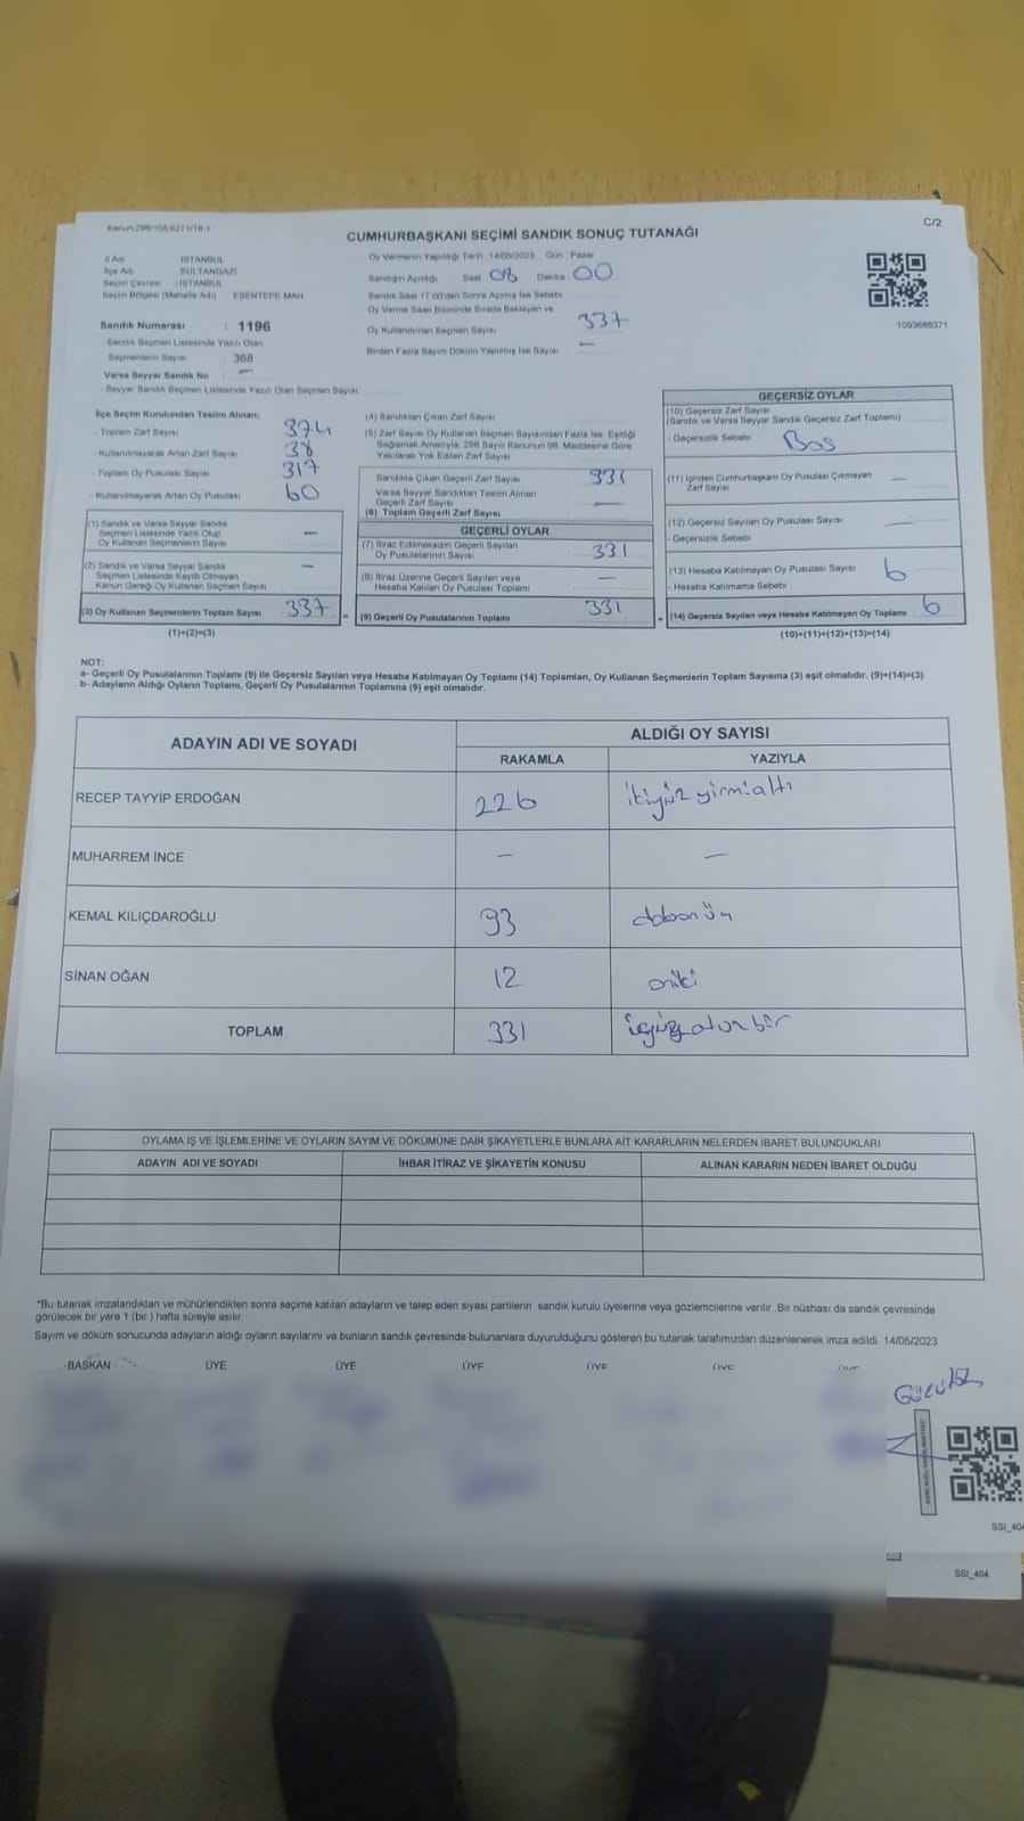 C/2
CUMHURBAŞKANI SEÇİMİ SANDIK SONUÇ TUTANAĞI
İl Adı : İSTANBUL
İlçe Adı : SULTANGAZİ
Seçim Çevresi : İSTANBUL
Seçim Bölgesi (Mahalle Adı) : ESENTEPE MAH.
Sandık Numarası : 1196
Sandık Seçmen Listesinde Yazılı Olan
Seçmenlerin Sayısı : 368
Varsa Seyyar Sandık No —
Seyyar Sandık Seçmen Listesinde Yazılı Olan Seçmen Sayısı
Oy Vermenin Yapıldığı Tarih 14/05/2023 Gün Pazar
Sandığın Açıldığı Saat 08 Dakika 00
Sandık Saat 17.00'den Sonra Açılmış İse Sebebi
Oy Verme Saati Bitiminde Sırada Bekleyen ve
Oy Kullandırılan Seçmen Sayısı 337
Birden Fazla Sayım Döküm Yapılmış İse Sayısı —
1093686371
İlçe Seçim Kurulundan Teslim Alınan;
- Toplam Zarf Sayısı 374
- Kullanılmayarak Artan Zarf Sayısı 38
- Toplam Oy Pusulası Sayısı 317
- Kullanılmayarak Artan Oy Pusulası 60
(1) Sandık ve Varsa Seyyar Sandık
Seçmen Listesinde Yazılı Olup
Oy Kullanan Seçmenlerin Sayısı —
(2) Sandık ve Varsa Seyyar Sandık
Seçmen Listesinde Kayıtlı Olmayan
Kanun Gereği Oy Kullanan Seçmen Sayısı —
(3) Oy Kullanan Seçmenlerin Toplam Sayısı 337
(1)+(2)=(3)
(4) Sandıktan Çıkan Zarf Sayısı
(5) Zarf Sayısı Oy Kullanan Seçmen Sayısından Fazla İse, Eşitliği
Sağlamak Amacıyla, 298 Sayılı Kanunun 98. Maddesine Göre
Yakılarak Yok Edilen Zarf Sayısı
Sandıkta Çıkan Geçerli Zarf Sayısı 331
Varsa Seyyar Sandıktan Teslim Alınan
Geçerli Zarf Sayısı —
(6) Toplam Geçerli Zarf Sayısı
GEÇERLİ OYLAR
(7) İtiraz Edilmeksizin Geçerli Sayılan
Oy Pusulalarının Sayısı 331
(8) İtiraz Üzerine Geçerli Sayılan veya
Hesaba Katılan Oy Pusulası Toplamı —
(9) Geçerli Oy Pusulalarının Toplamı 331
GEÇERSİZ OYLAR
(10) Geçersiz Zarf Sayısı
(Sandık ve Varsa Seyyar Sandık Geçersiz Zarf Toplamı)
- Geçersizlik Sebebi Boş
(11) İçinden Cumhurbaşkanı Oy Pusulası Çıkmayan
Zarf Sayısı —
(12) Geçersiz Sayılan Oy Pusulası Sayısı —
- Geçersizlik Sebebi
(13) Hesaba Katılmayan Oy Pusulası Sayısı 6
- Hesaba Katılmama Sebebi
(14) Geçersiz Sayılan veya Hesaba Katılmayan Oy Toplamı 6
(10)+(11)+(12)+(13)=(14)
NOT:
a- Geçerli Oy Pusulalarının Toplamı (9) ile Geçersiz Sayılan veya Hesaba Katılmayan Oy Toplamı (14) Toplamları, Oy Kullanan Seçmenlerin Toplam Sayısına (3) eşit olmalıdır. (9)+(14)=(3)
b- Adayların Aldığı Oyların Toplamı, Geçerli Oy Pusulalarının Toplamına (9) eşit olmalıdır.
ADAYIN ADI VE SOYADI ALDIĞI OY SAYISI
RAKAMLA YAZIYLA
RECEP TAYYİP ERDOĞAN 226 ikiyüz yirmialtı
MUHARREM İNCE — —
KEMAL KILIÇDAROĞLU 93 doksanüç
SİNAN OĞAN 12 oniki
TOPLAM 331 üçyüzotuzbir
OYLAMA İŞ VE İŞLEMLERİNE VE OYLARIN SAYIM VE DÖKÜMÜNE DAİR ŞİKAYETLERLE BUNLARA AİT KARARLARIN NELERDEN İBARET BULUNDUKLARI
ADAYIN ADI VE SOYADI İHBAR İTİRAZ VE ŞİKAYETİN KONUSU ALINAN KARARIN NEDEN İBARET OLDUĞU
*Bu tutanak imzalandıktan ve mühürlendikten sonra seçime katılan adayların ve talep eden siyasi partilerin sandık kurulu üyelerine veya gözlemcilerine verilir. Bir nüshası da sandık çevresinde
görülecek bir yere 1 (bir) hafta süreyle asılır.
Sayım ve döküm sonucunda adayların aldığı oyların sayılarını ve bunların sandık çevresinde bulunanlara duyurulduğunu gösteren bu tutanak tarafımızdan düzenlenerek imza edildi. 14/05/2023
BAŞKAN ÜYE ÜYE ÜYE ÜYE ÜYE ÜYE
SSI_404
SSI_404